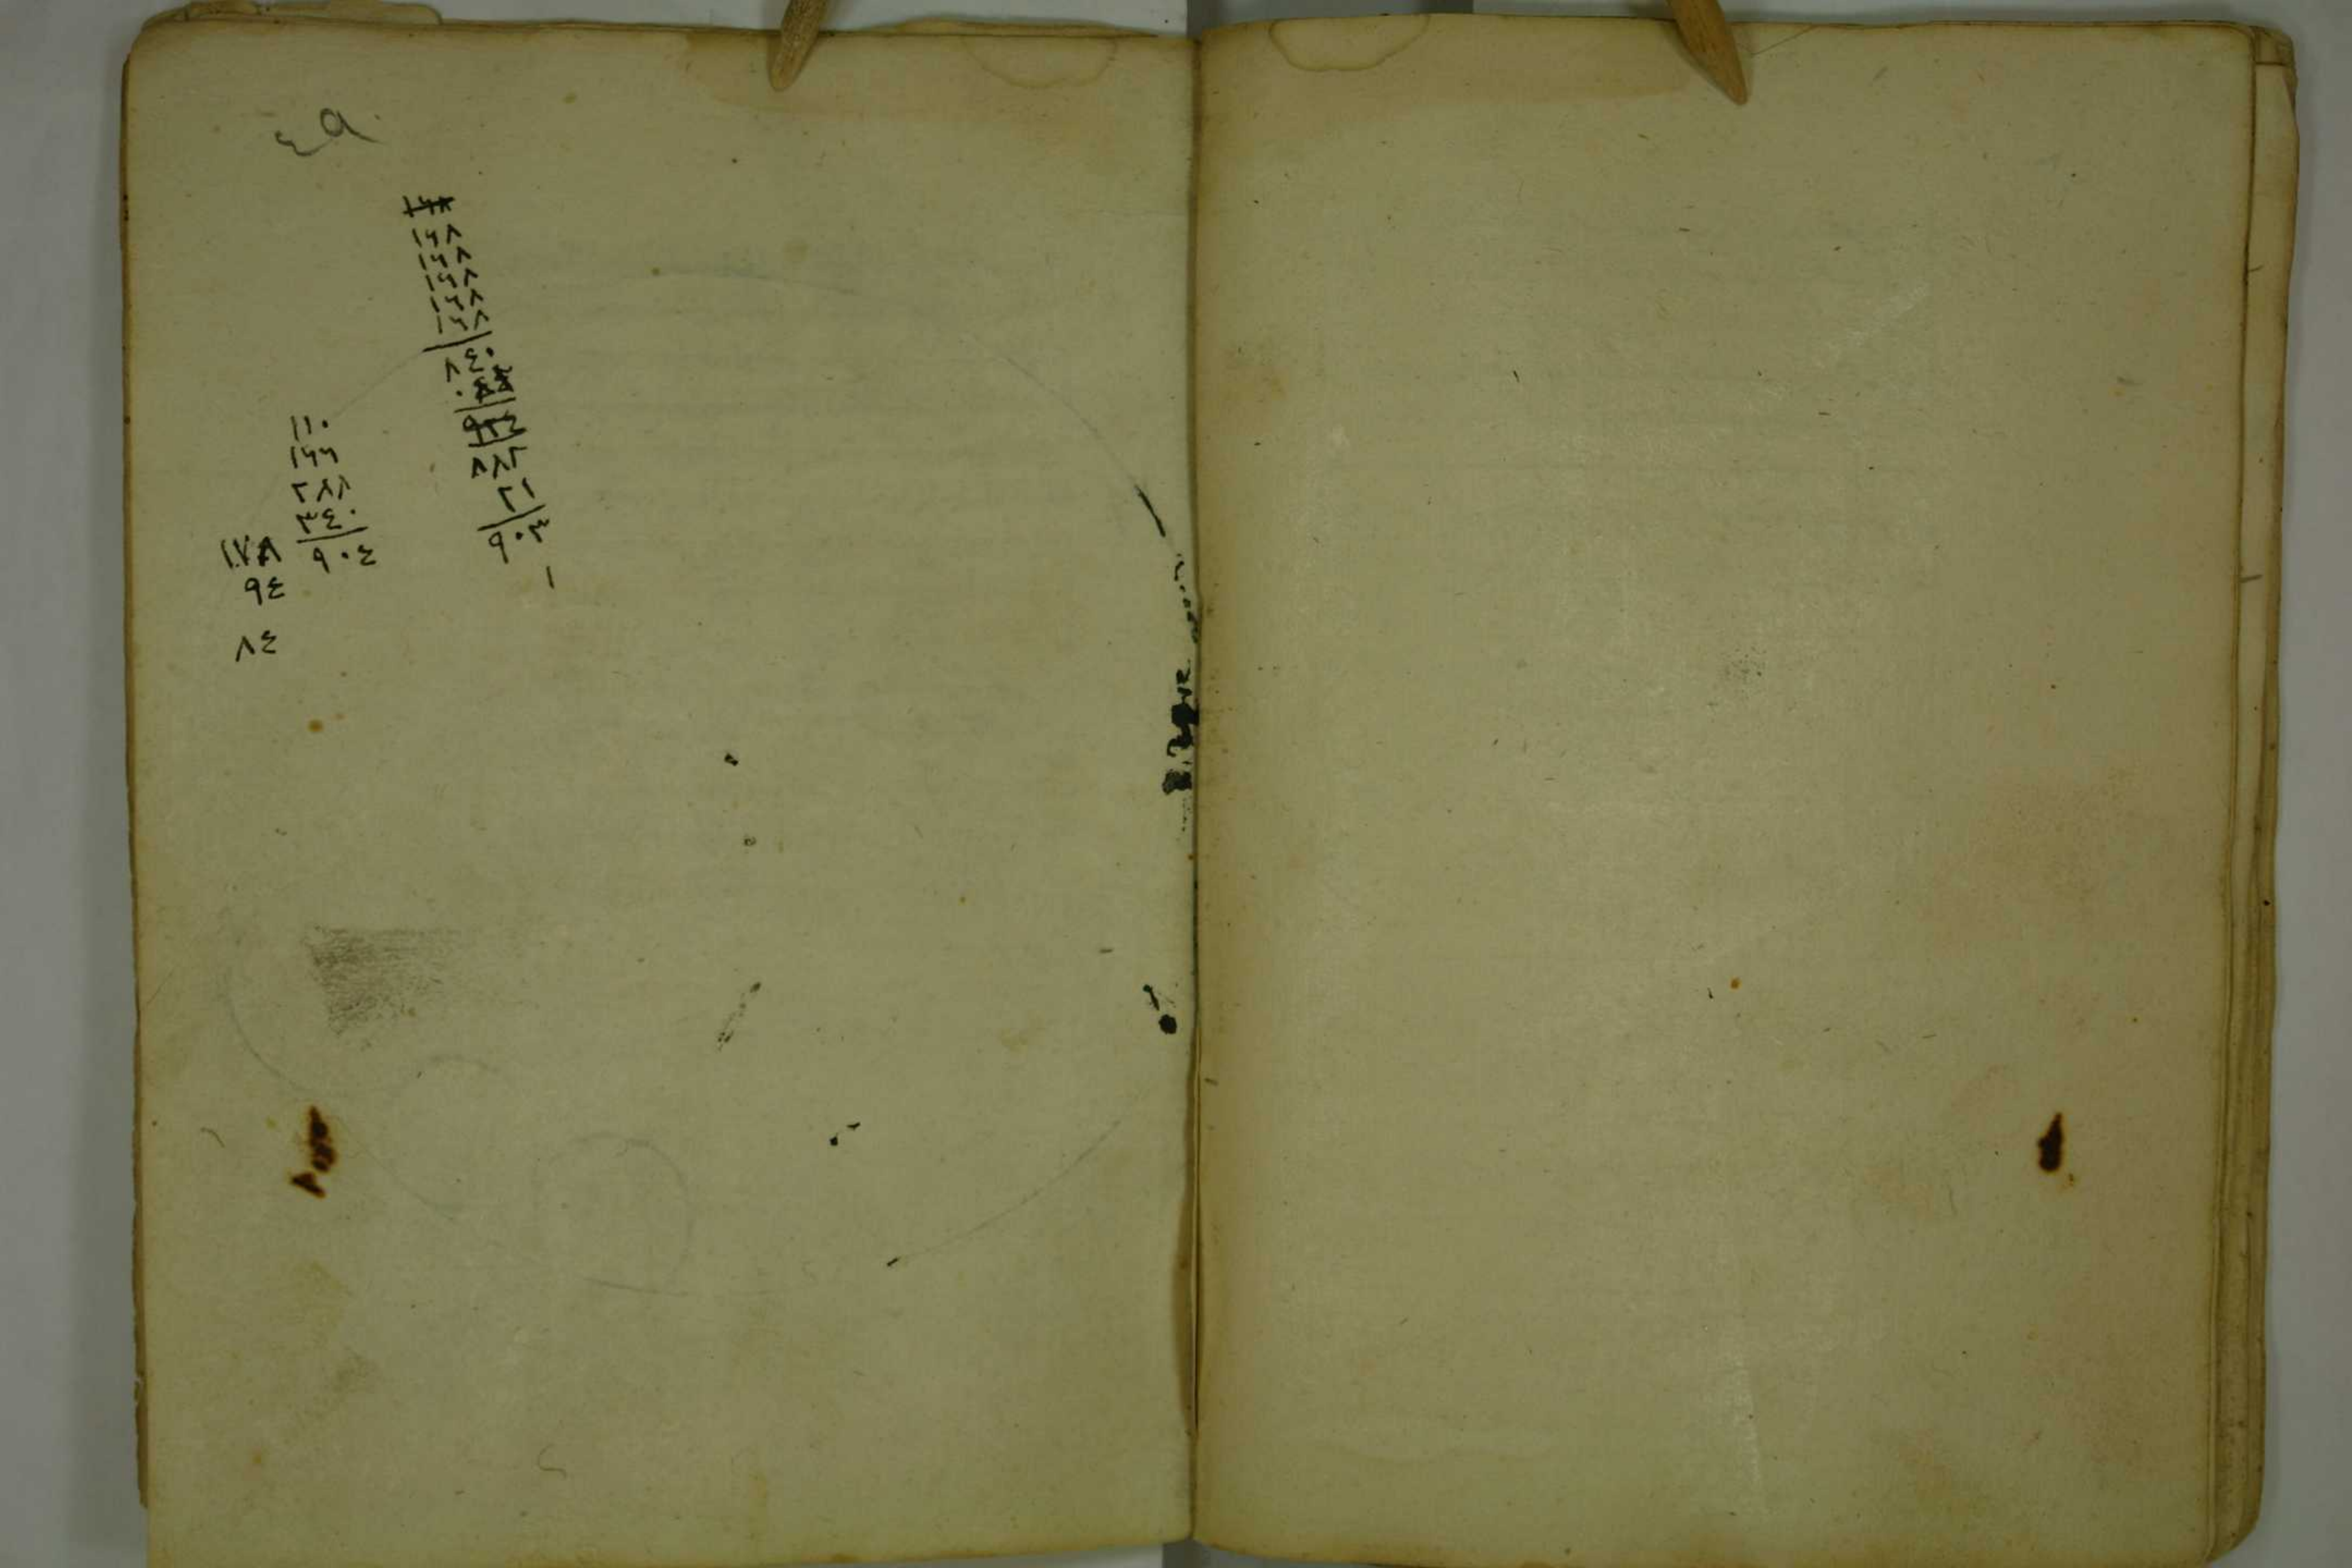 ٤٩
١٦٨
١٦٨
١٦٨
١٦٨
١٦٨
٨٤٠
٨٨٢
٢١
٩٠٣
١
١١٠
١٦٦
٢٨٨
٣٤٠
٩٠٤
٩٤
٨٤